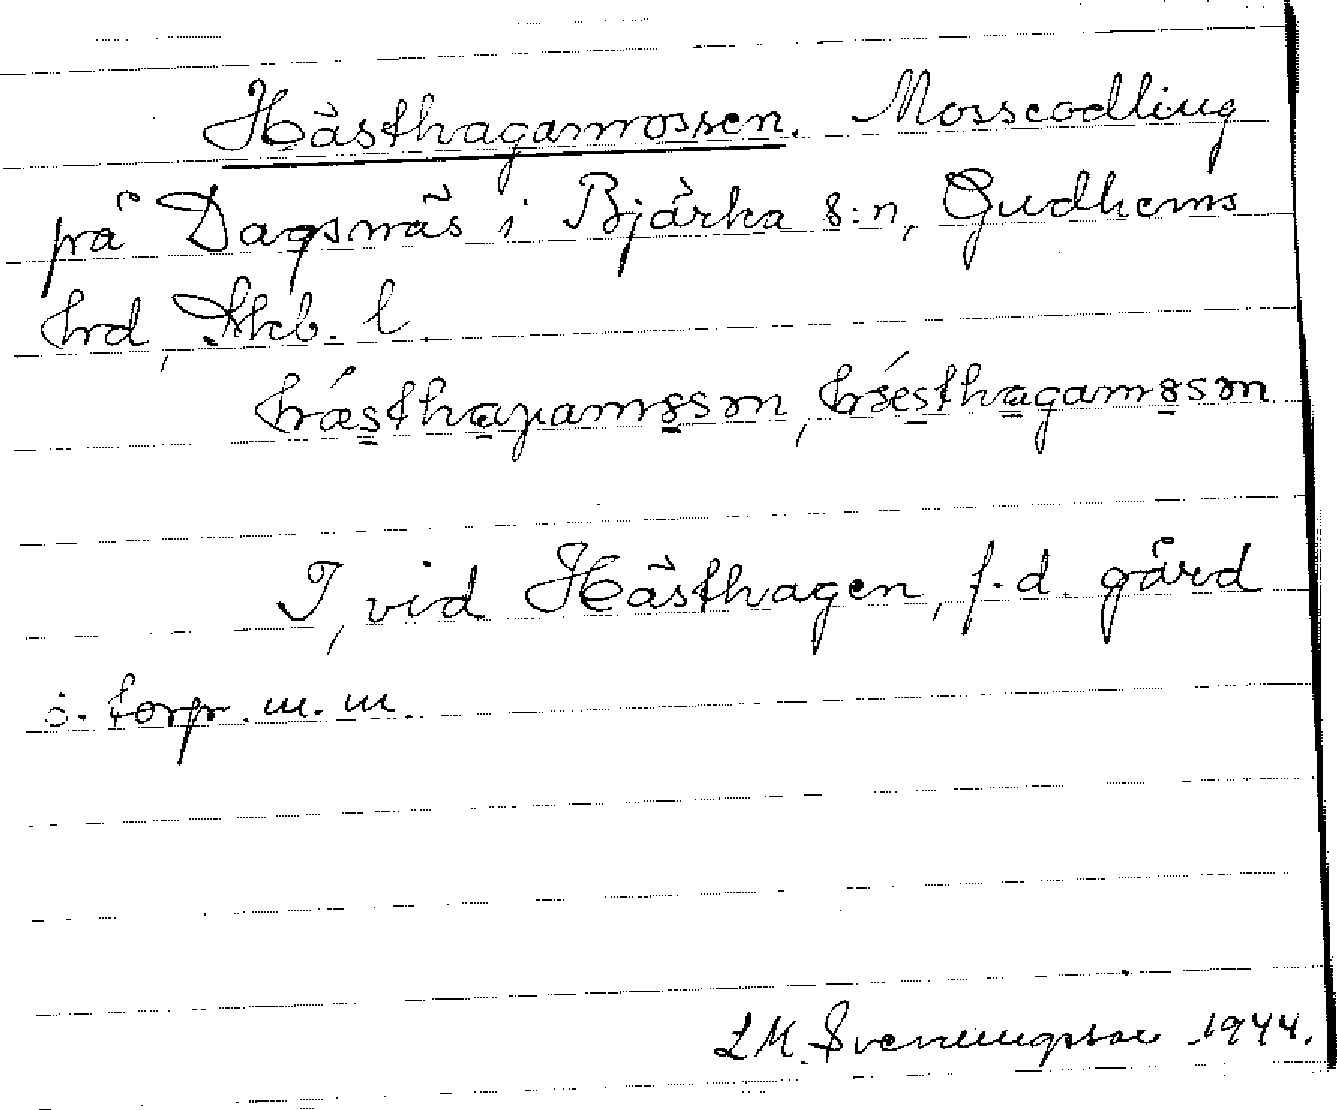 Hästhagamossen. Mosseodling
på Dagsnäs i Bjärka s:n, Gudhems
hrd, Skb. l.
hæsthagamɔsən, hæsthagamɔsən
I, vid Hästhagen, f.d. gård
o. torp. m. m.
L M. Svenungsson 1944.